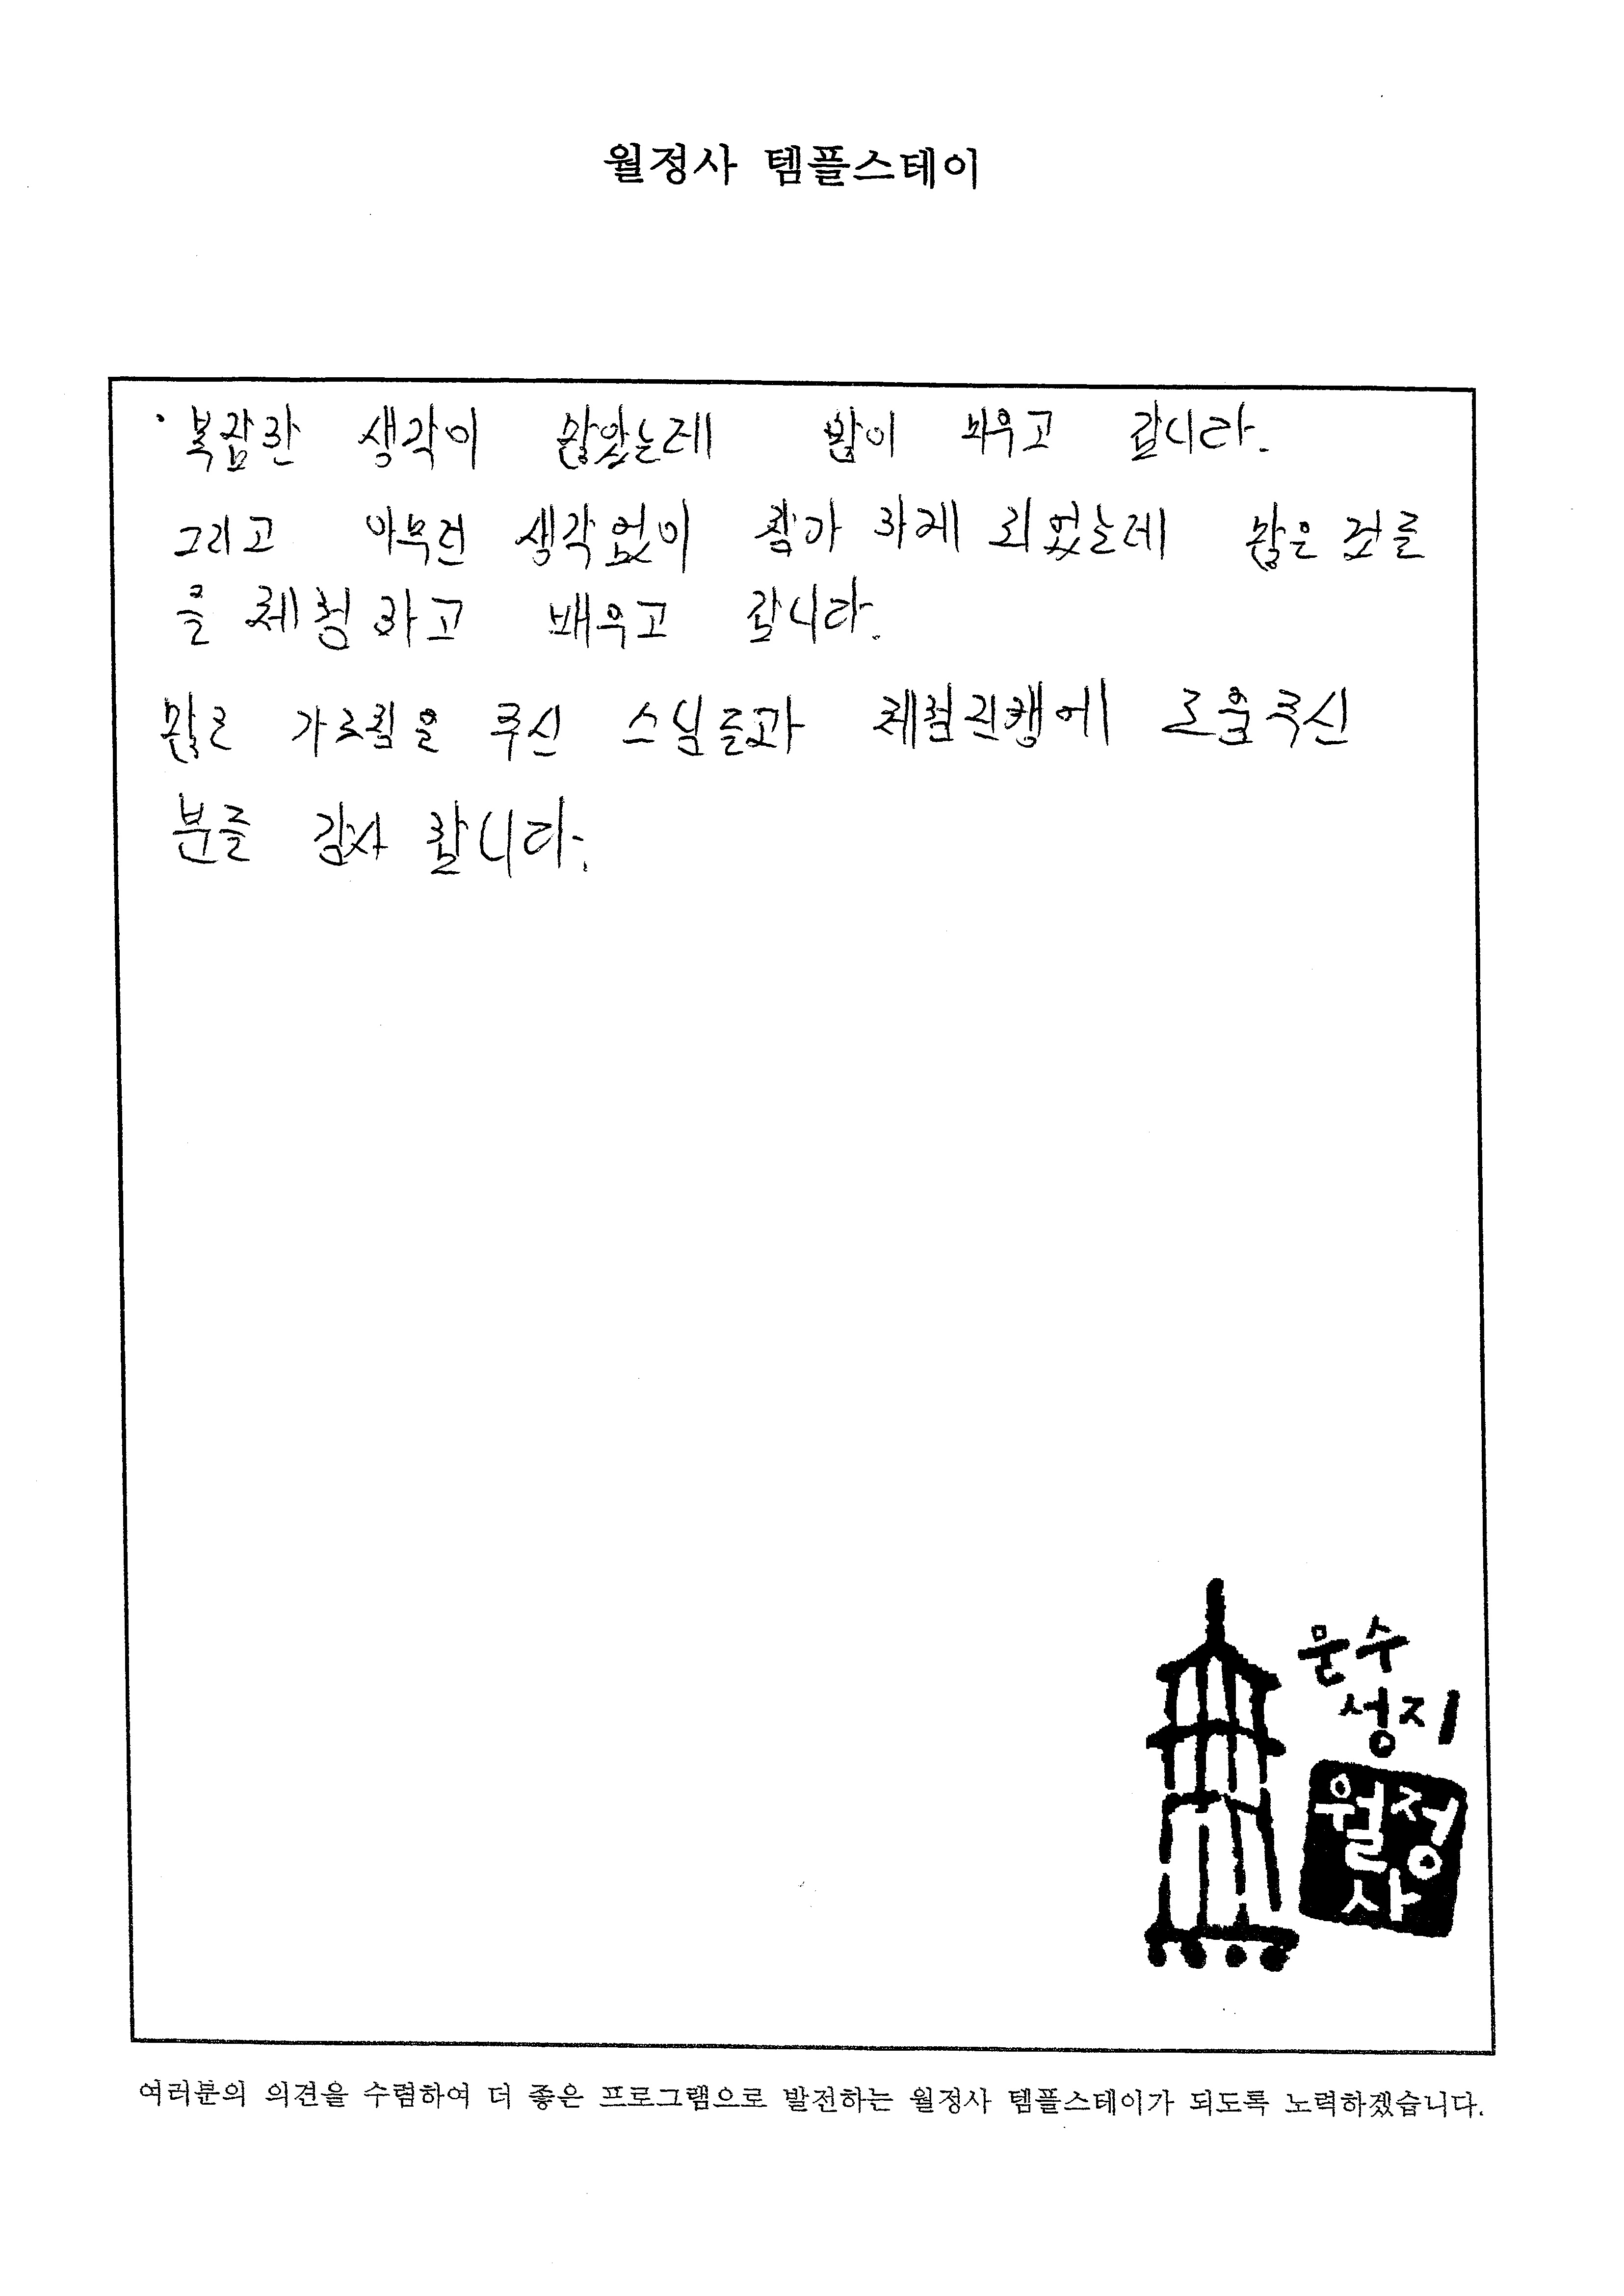 월정사 템플스테이
· 복잡한 생각이 많았는데 많이 배우고 갑니다.
그리고 아무런 생각없이 참가 하게 되었는데 많은 것들
을 체험하고 배우고 갑니다.
많은 가르침을 주신 스님들과 체험진행에 도움주신
분들 감사 합니다.
문수
성지
월정
사
여러분의 의견을 수렴하여 더 좋은 프로그램으로 발전하는 월정사 템플스테이가 되도록 노력하겠습니다.